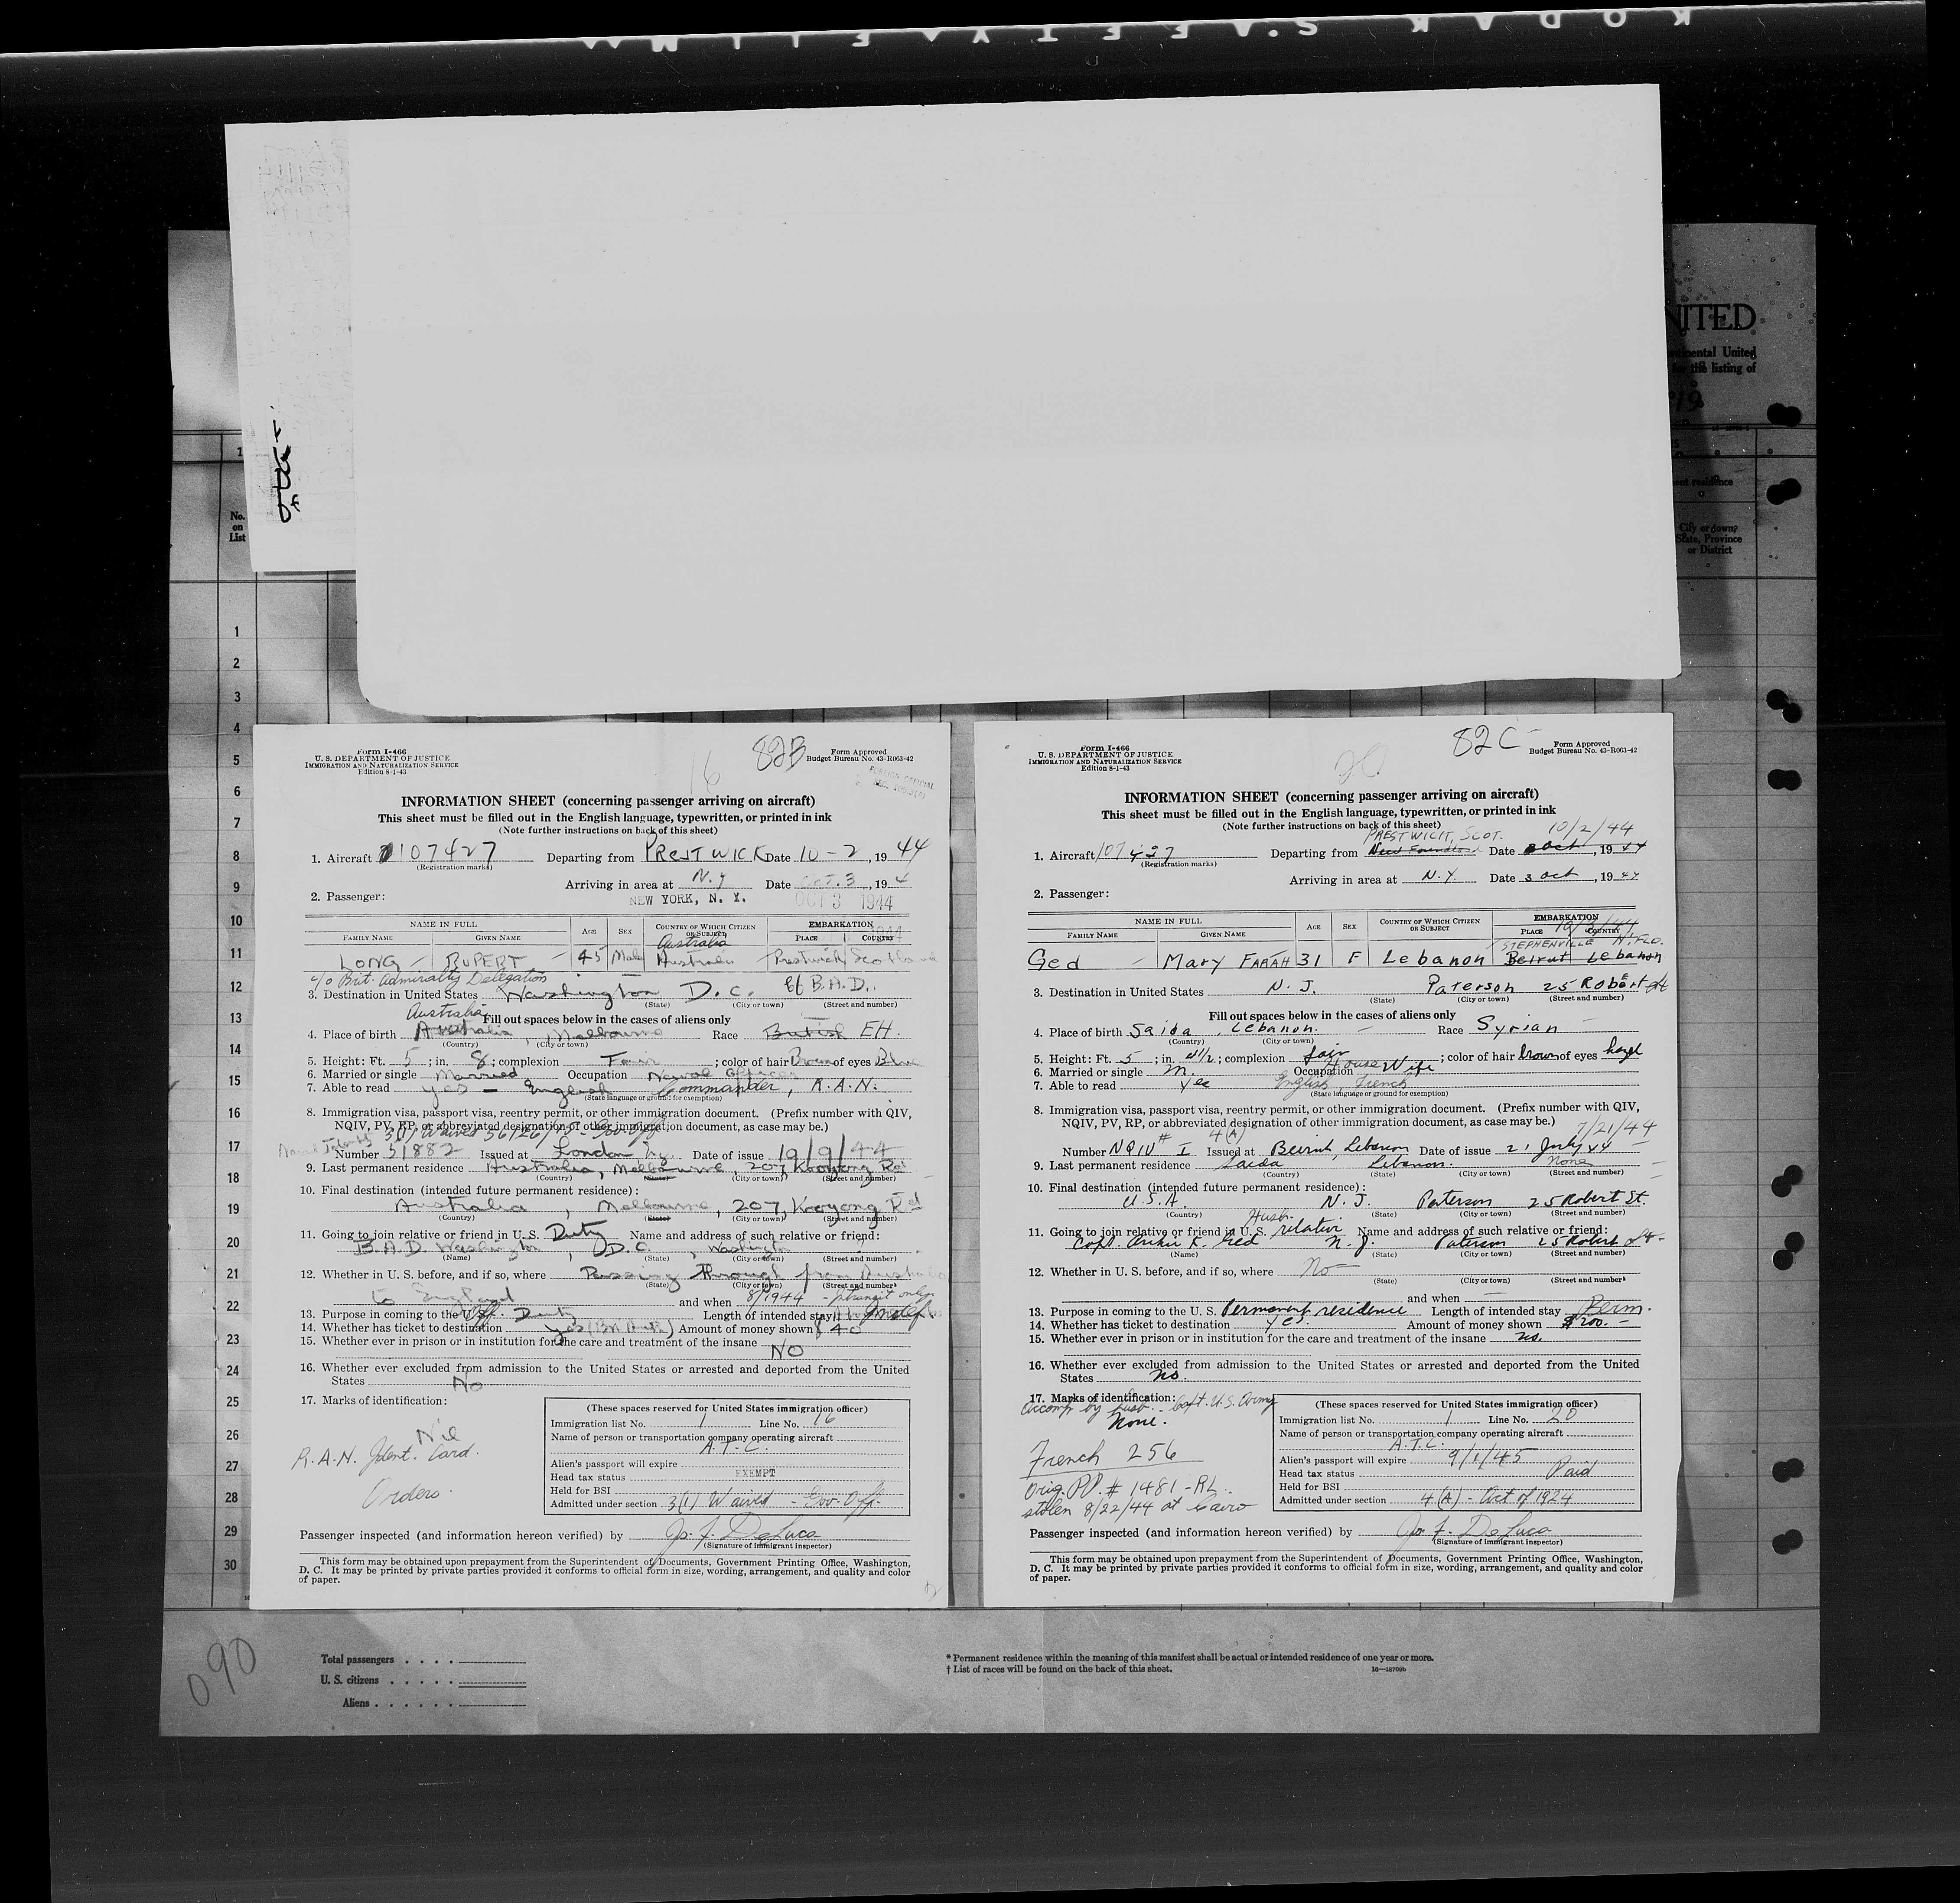 KODAK SAFETY FILM
NITED
nental United
for the listing of
19
ent residence
City or town,
State, Province
or District
1
No.
on
List
1
2
3
4
5
6
7
8
9
10
11
12
13
14
15
16
17
18
19
20
21
22
23
24
25
26
27
28
29
30
Form I-466
U. S. DEPARTMENT OF JUSTICE
IMMIGRATION AND NATURALIZATION SERVICE
Edition 8-1-43
16
82B
Form Approved
Budget Bureau No. 43-R063-42
FOREIGN OFFICIAL
INFORMATION SHEET (concerning passenger arriving on aircraft)
This sheet must be filled out in the English language, typewritten, or printed in ink
(Note further instructions on back of this sheet)
1. Aircraft 107427 Departing from PRESTWICK Date 10-2, 1944
(Registration marks)
Arriving in area at N.Y Date Oct. 3, 194
2. Passenger: NEW YORK, N. Y. OCT 3 1944
NAME IN FULL AGE SEX COUNTRY OF WHICH CITIZEN OR SUBJECT EMBARKATION
FAMILY NAME GIVEN NAME PLACE COUNTRY
Australia
LONG RUPERT 45 Male Australia Prestwick Scotland
c/o Brit. Admiralty Delegation
3. Destination in United States Washington D.C. B.A.D.
(State) (City or town) (Street and number)
Fill out spaces below in the cases of aliens only
Australia
4. Place of birth Australia, Melbourne Race British EH.
(Country) (City or town)
5. Height: Ft. 5; in. 8; complexion Fair; color of hair Brown of eyes Blue
6. Married or single Married Occupation Naval Officer
7. Able to read yes - English Commander, R.A.N.
(State language or ground for exemption)
8. Immigration visa, passport visa, reentry permit, or other immigration document. (Prefix number with QIV,
NQIV, PV, RP, or abbreviated designation of other immigration document, as case may be.)
3(1) Waived 56126/10 - Gov. Off.
Number 51882 Issued at London Date of issue 19/9/44
9. Last permanent residence Australia, Melbourne, 207, Kooyong Rd
(Country) (State) (City or town) (Street and number)
10. Final destination (intended future permanent residence):
Australia, Melbourne, 207, Kooyong Rd
(Country) (State) (City or town) (Street and number)
11. Going to join relative or friend in U.S. Duty Name and address of such relative or friend:
B.A.D. Washington, D.C., Washington
(Name) (State) (City or town) (Street and number)
12. Whether in U. S. before, and if so, where Passing through from Australia
(State) (City or town) (Street and number)
to England and when 8/1944 - transit only
13. Purpose in coming to the U.S. Off. Duty Length of intended stay Indef
14. Whether has ticket to destination yes Amount of money shown $40
15. Whether ever in prison or in institution for the care and treatment of the insane NO
16. Whether ever excluded from admission to the United States or arrested and deported from the United
States No
17. Marks of identification:
Nil
R.A.N. Ident. Card.
Orders.
(These spaces reserved for United States immigration officer)
Immigration list No. 1 Line No. 16
Name of person or transportation company operating aircraft
A.T.C.
Alien's passport will expire
Head tax status EXEMPT
Held for BSI
Admitted under section 3(1) Waived - Gov. Off.
Passenger inspected (and information hereon verified) by Jo. F. DeLuca
(Signature of immigrant inspector)
This form may be obtained upon prepayment from the Superintendent of Documents, Government Printing Office, Washington,
D. C. It may be printed by private parties provided it conforms to official form in size, wording, arrangement, and quality and color
of paper.
Form I-466
U. S. DEPARTMENT OF JUSTICE
IMMIGRATION AND NATURALIZATION SERVICE
Edition 8-1-43
20
82C
Form Approved
Budget Bureau No. 43-R063-42
INFORMATION SHEET (concerning passenger arriving on aircraft)
This sheet must be filled out in the English language, typewritten, or printed in ink
(Note further instructions on back of this sheet)
PRESTWICK, SCOT. 10/2/44
1. Aircraft 107427 Departing from New Foundland Date 2 Oct, 1944
(Registration marks)
Arriving in area at N.Y. Date 3 Oct, 1944
2. Passenger:
NAME IN FULL AGE SEX COUNTRY OF WHICH CITIZEN OR SUBJECT EMBARKATION
FAMILY NAME GIVEN NAME PLACE COUNTRY
STEPHENVILLE N.FLD.
Ged Mary FARAH 31 F Lebanon Beirut Lebanon
3. Destination in United States N. J. Paterson 25 Robert St
(State) (City or town) (Street and number)
Fill out spaces below in the cases of aliens only
4. Place of birth Saida, Lebanon. Race Syrian
(Country) (City or town)
5. Height: Ft. 5; in. 4 1/2; complexion fair; color of hair brown of eyes hazel
6. Married or single M. Occupation House Wife
7. Able to read yes English, French
(State language or ground for exemption)
8. Immigration visa, passport visa, reentry permit, or other immigration document. (Prefix number with QIV,
NQIV, PV, RP, or abbreviated designation of other immigration document, as case may be.)
4(A) 7/21/44
Number NQIV # I Issued at Beirut, Lebanon Date of issue 21 July 44
9. Last permanent residence Saida Lebanon. None
(Country) (State) (City or town) (Street and number)
10. Final destination (intended future permanent residence):
U.S.A. N. J. Paterson 25 Robert St.
(Country) (State) (City or town) (Street and number)
Husb.
11. Going to join relative or friend in U.S. relative Name and address of such relative or friend:
Capt. Arthur K. Ged N. J. Paterson 25 Robert St.
(Name) (State) (City or town) (Street and number)
12. Whether in U. S. before, and if so, where No
(State) (City or town) (Street and number)
and when —
13. Purpose in coming to the U. S. Permanent residence Length of intended stay Perm.
14. Whether has ticket to destination yes. Amount of money shown $200.-
15. Whether ever in prison or in institution for the care and treatment of the insane no.
16. Whether ever excluded from admission to the United States or arrested and deported from the United
States no.
17. Marks of identification:
Accomp by husb. - Capt. U.S. Army
None.
French 256
Orig. PP. # 1481-RL.
stolen 8/22/44 at Cairo
(These spaces reserved for United States immigration officer)
Immigration list No. 1 Line No. 20
Name of person or transportation company operating aircraft
A.T.C.
Alien's passport will expire 9/1/45
Head tax status Paid
Held for BSI
Admitted under section 4(A) - Act of 1924
Passenger inspected (and information hereon verified) by Jo. F. DeLuca
(Signature of immigrant inspector)
This form may be obtained upon prepayment from the Superintendent of Documents, Government Printing Office, Washington,
D. C. It may be printed by private parties provided it conforms to official form in size, wording, arrangement, and quality and color
of paper.
090
Total passengers
U. S. citizens
Aliens
* Permanent residence within the meaning of this manifest shall be actual or intended residence of one year or more.
† List of races will be found on the back of this sheet.